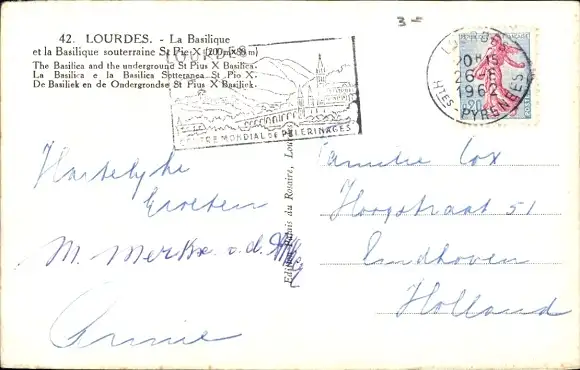 42. LOURDES. - La Basilique
et la Basilique souterraine St Pie X (200m×80m)
The Basilica and the underground St Pius X Basilica.
La Basilica e la Basilica Sotteranea St Pio X.
De Basiliek en de Ondergrondse St Pius X Basiliek.
LOURDES
CENTRE MONDIAL DE PÈLERINAGES
3=
20H15
26-6
1962
HTES PYRENEES
0,20
Hartelyke
Groeten
M. Merkx. v.d.
Annie
Palais du Rosaire, Lourdes
Familie Cox
Hoogstraat 51
Eindhoven
Holland